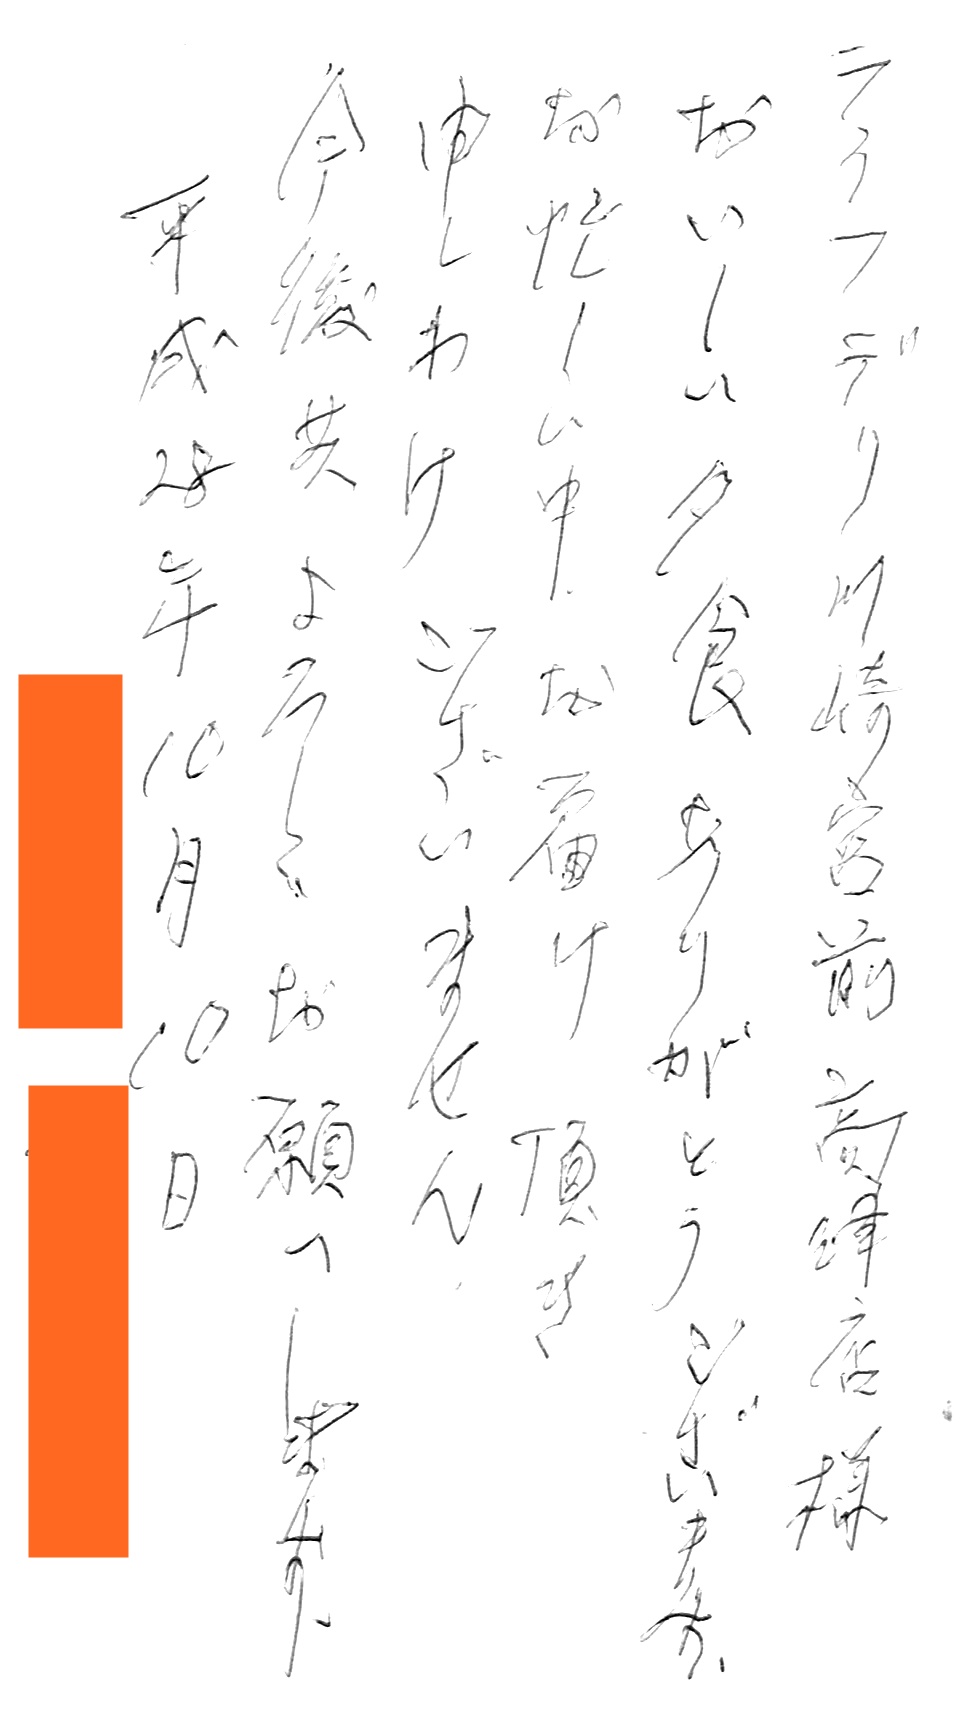 ライフデリ川崎宮前高津店様
おいしい夕食ありがとうございます、
お忙しい中、お届け頂き
申しわけございません、
今後共よろしくお願いします、
平成28年10月10日